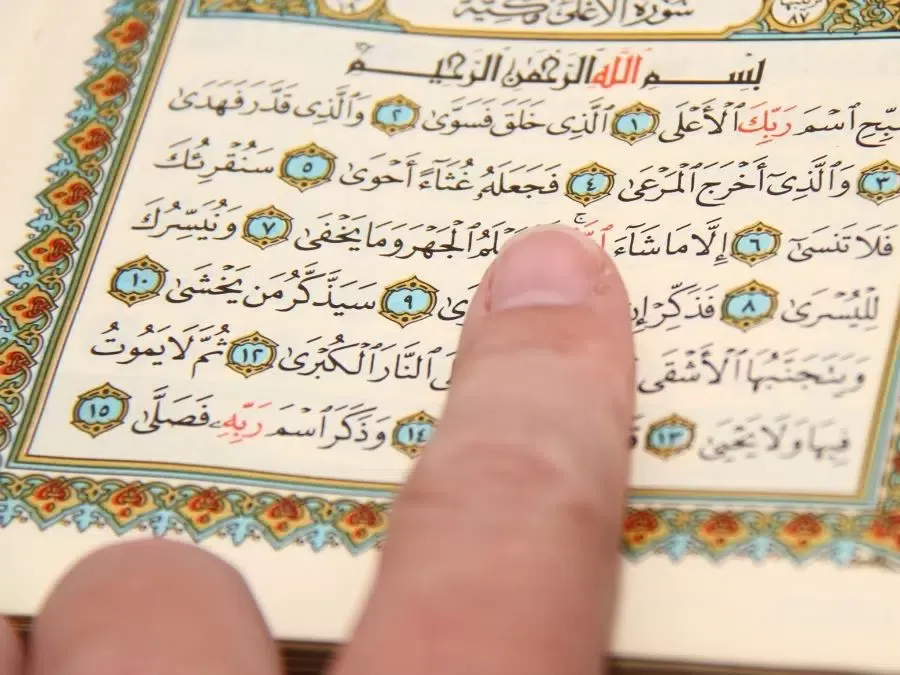 سُورَةُ الأَعْلَى مَكِّيَّة ٨٧
بِسْمِ ٱللَّهِ ٱلرَّحْمَٰنِ ٱلرَّحِيمِ
بِّحِ ٱسْمَ رَبِّكَ ٱلْأَعْلَى ١ ٱلَّذِى خَلَقَ فَسَوَّىٰ ٢ وَٱلَّذِى قَدَّرَ فَهَدَىٰ
٣ وَٱلَّذِىٓ أَخْرَجَ ٱلْمَرْعَىٰ ٤ فَجَعَلَهُۥ غُثَآءً أَحْوَىٰ ٥ سَنُقْرِئُكَ
فَلَا تَنسَىٰٓ ٦ إِلَّا مَا شَآءَ ٱلْجَهْرَ وَمَا يَخْفَىٰ ٧ وَنُيَسِّرُكَ
لِلْيُسْرَىٰ ٨ فَذَكِّرْ إِن ٩ سَيَذَّكَّرُ مَن يَخْشَىٰ ١٠
وَيَتَجَنَّبُهَا ٱلْأَشْقَى ٱلنَّارَ ٱلْكُبْرَىٰ ١٢ ثُمَّ لَا يَمُوتُ
فِيهَا وَلَا يَحْيَىٰ ١٣ ١٤ وَذَكَرَ ٱسْمَ رَبِّهِۦ فَصَلَّىٰ ١٥